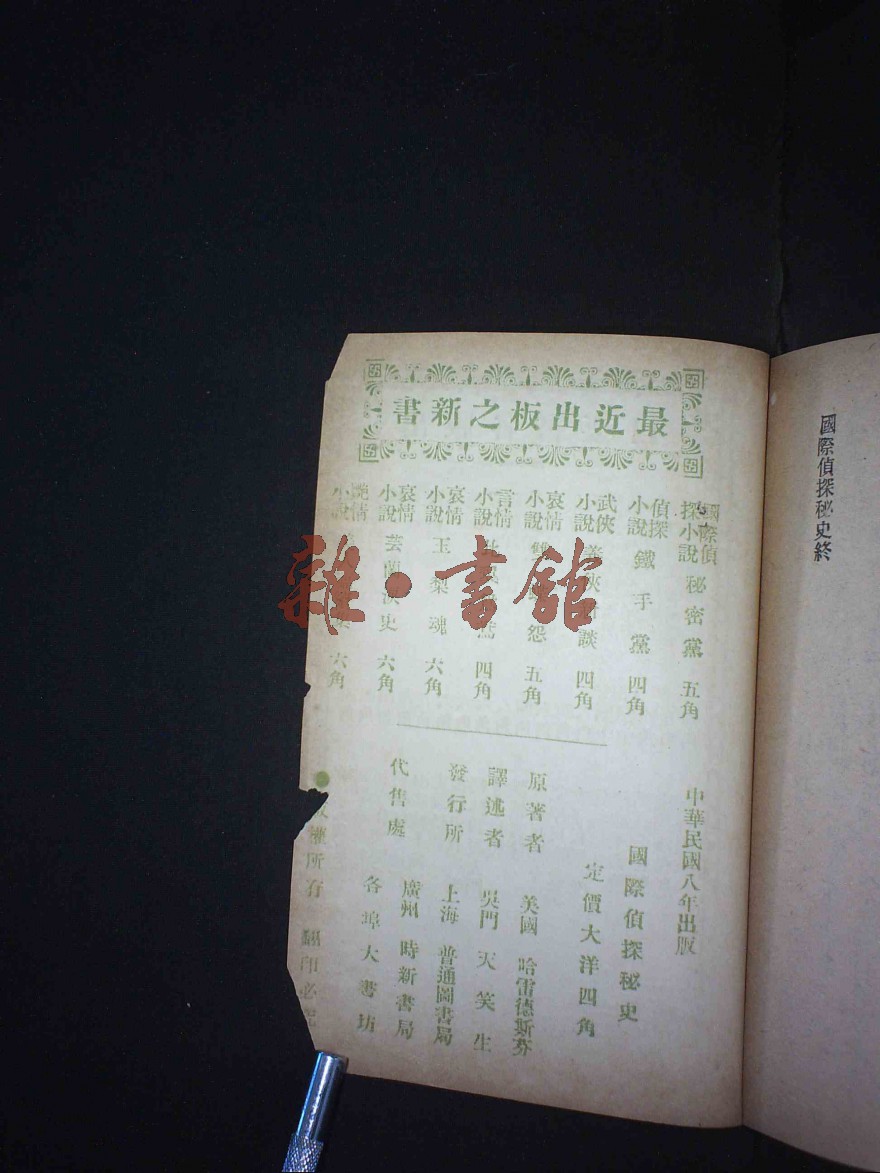 國際偵探秘史終
最近出板之新書
國際偵探小說 秘密黨 五角
偵探小說 鐵手黨 四角
武俠小說 俠 談 四角
哀情小說 怨 五角
言情小說 四角
哀情小說 玉梨魂 六角
哀情小說 芸蘭淚史 六角
艷情小說 六角
中華民國八年出版
國際偵探秘史
定價大洋四角
原著者 美國 哈雷德斯芬
譯述者 吳門 天笑生
發行所 上海 普通圖書局
代售處 廣州 時新書局
各埠大書坊
權所有 翻印必
雜·書館